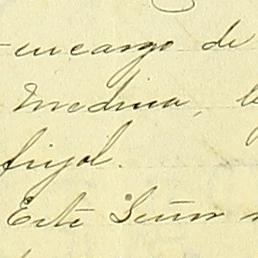 encargo de
Medina,
frijol.
Este Señor